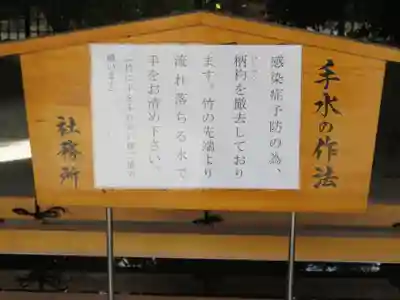 手水の作法
感染症予防の為、
柄杓を撤去しており
ます。竹の先端より
流れ落ちる水で
手をお清め下さい。
願います）
社務所